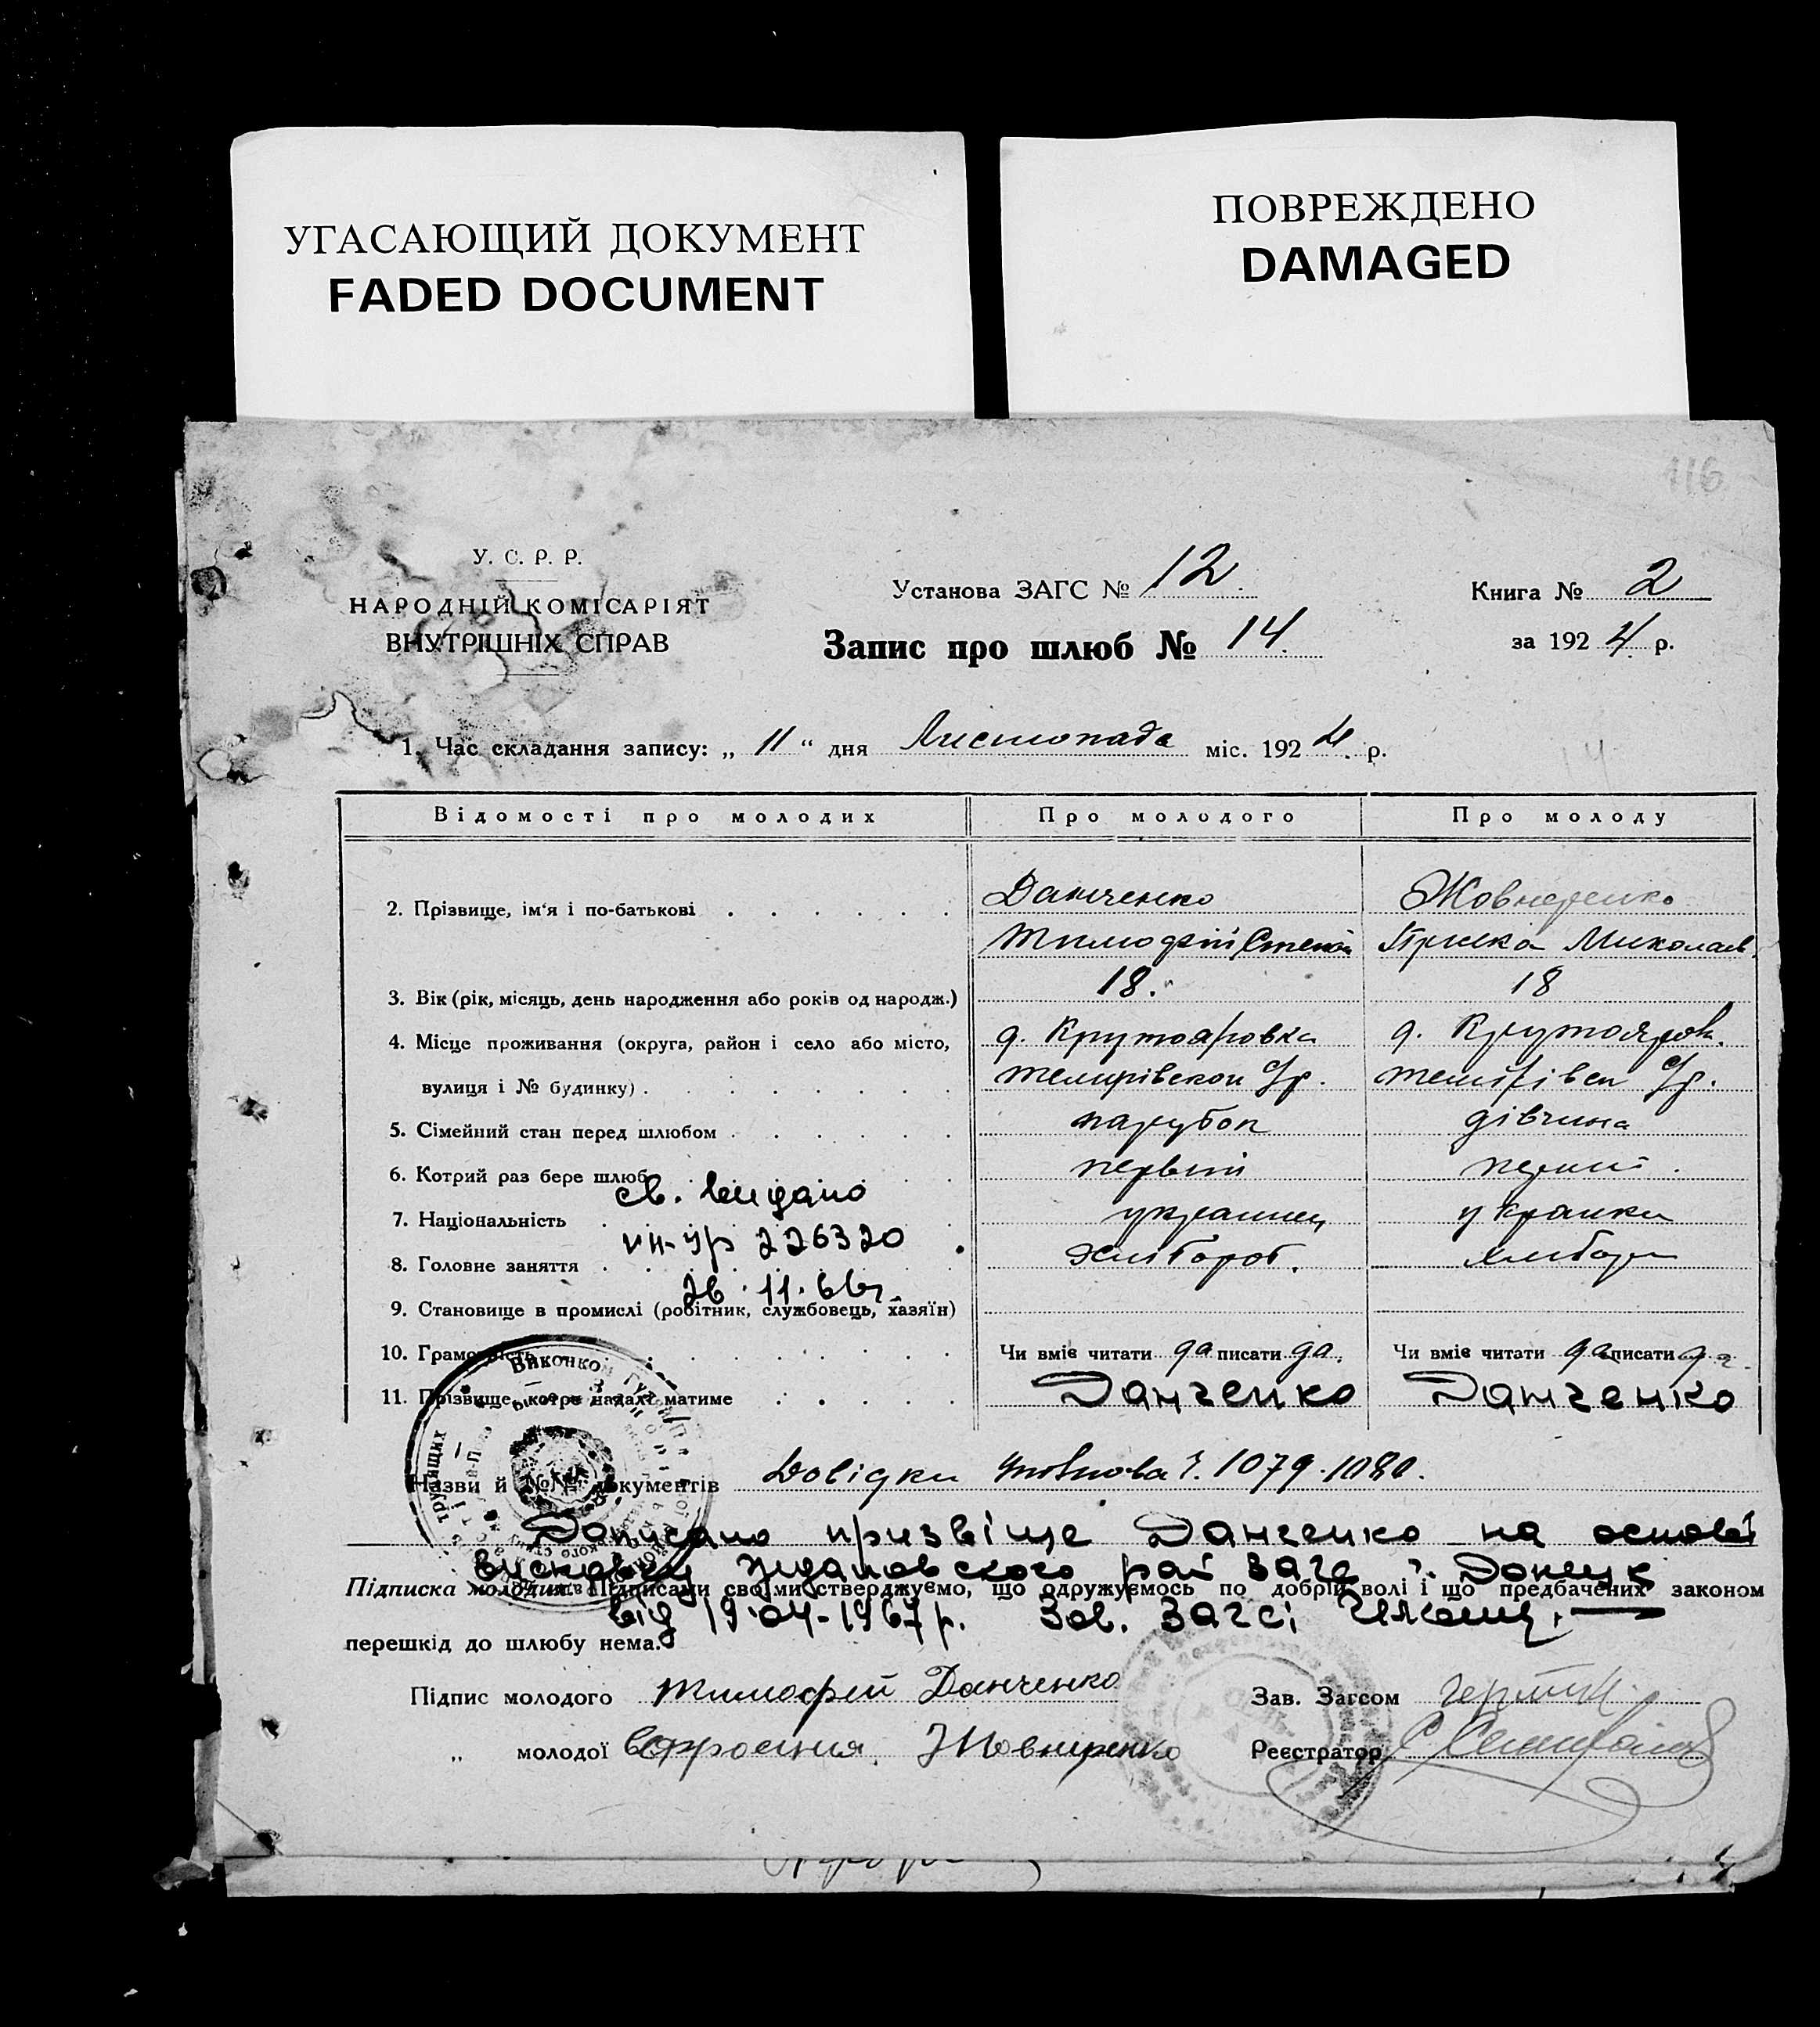 УГАСАЮЩИЙ ДОКУМЕНТ
FADED DOCUMENT
ПОВРЕЖДЕНО
DAMAGED
116
У. С. Р. Р.
НАРОДНІЙ КОМІСАРІЯТ
ВНУТРІШНІХ СПРАВ
Установа ЗАГС № 12.
Запис про шлюб № 14.
Книга № 2
за 1924 р.
1. Час складання запису: „ 11 “ дня Листопада міс. 1924. р.
14
Відомості про молодих Про молодого Про молоду
2. Прізвище, ім'я і по-батькові Данченко Жовнеренко
Тимофій Степан Прiська Миколаєв.
3. Вік (рік, місяць, день народження або років од народж.) 18. 18
4. Місце проживання (округа, район і село або місто, д. Крутояровка д. Крутояров.
вулиця і № будинку) Темирівскои С/р. Темирівск С/р.
5. Сімейний стан перед шлюбом парубок дівчина
6. Котрий раз бере шлюб первий перший.
св. видано
7. Національність українец українка
226320
8. Головне заняття хлібороб. хлібороб
26.11.66
9. Становище в промислі (робітник, службовець, хазяїн)
10. Грамотність Чи вміє читати да писати да. Чи вміє читати да писати да.
11. Прізвище, котре надалі матиме Данченко Данченко
Назви й №№ документів Довідки 1079-1080.
Дописано призвіще Данченко на основі
висновку Ждановского рай ЗАГС г. Донецк
Підписка молодих. Підписами своїми стверджуємо, що одружуємось по добрій волі і що предбачених законом
від 19.04-1967 р. Зав. ЗАГСі
перешкід до шлюбу нема.
Підпис молодого Тимофей Данченко Зав. Загсом
„ молодої Єфросиния Жовниренко Реєстратор